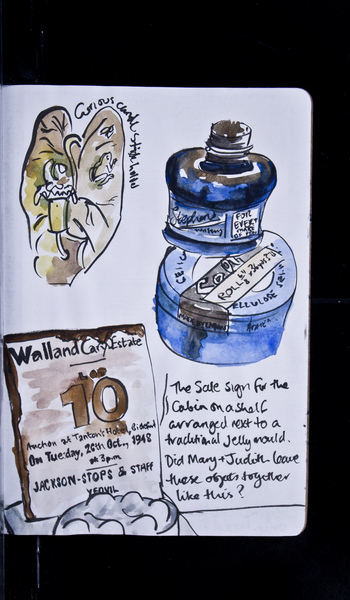 Curious candle-stick holder
Stephens
FOR
EVERY
COPAR
ROLL
CELLULOSE
Walland Cary Estate
LOT
10
Auction at Tanton's Hotel, Bideford
On Tuesday, 26th Oct., 1948
at 3 p.m.
JACKSON-STOPS & STAFF
YEOVIL
The Sale sign for the
Cabin on a shelf
arranged next to a
traditional jelly mould.
Did Mary + Judith leave
these objets together
like this?